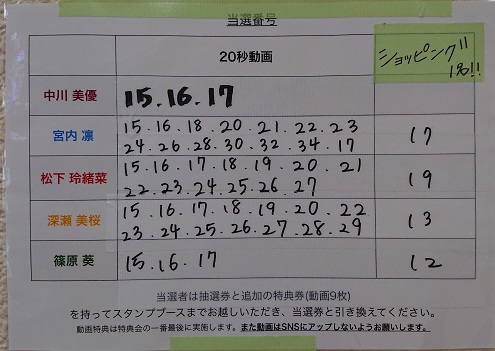 当選番号
20秒動画
ショッピング
1名!!
中川 美優
15.16.17
宮内 凛
15.16.18.20.21.22.23
24.26.28.30.32.34.17
17
松下 玲緒菜
15.16.17.18.19.20.21
22.23.24.25.26.27
19
深瀬 美桜
15.16.17.18.19.20.22
23.24.25.26.27.28.29
13
篠原 葵
15.16.17
12
当選者は抽選券と追加の特典券(動画9枚)
を持ってスタンプブースまでお越しいただき、当選券と引き換えてください。
動画特典は特典会の一番最後に実施します。また動画はSNSにアップしないようお願いします。